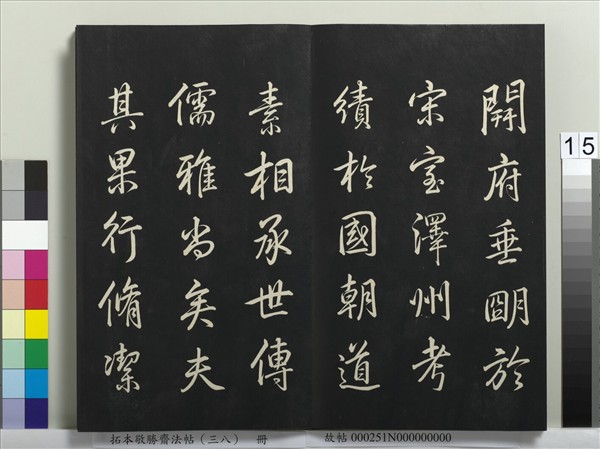 開府垂朙於
宋室澤州考
績於國朝道
素相承世傳
儒雅尚矣夫
其果行脩潔
15
拓本敬勝齋法帖（三八） 冊
故帖 000251N000000000